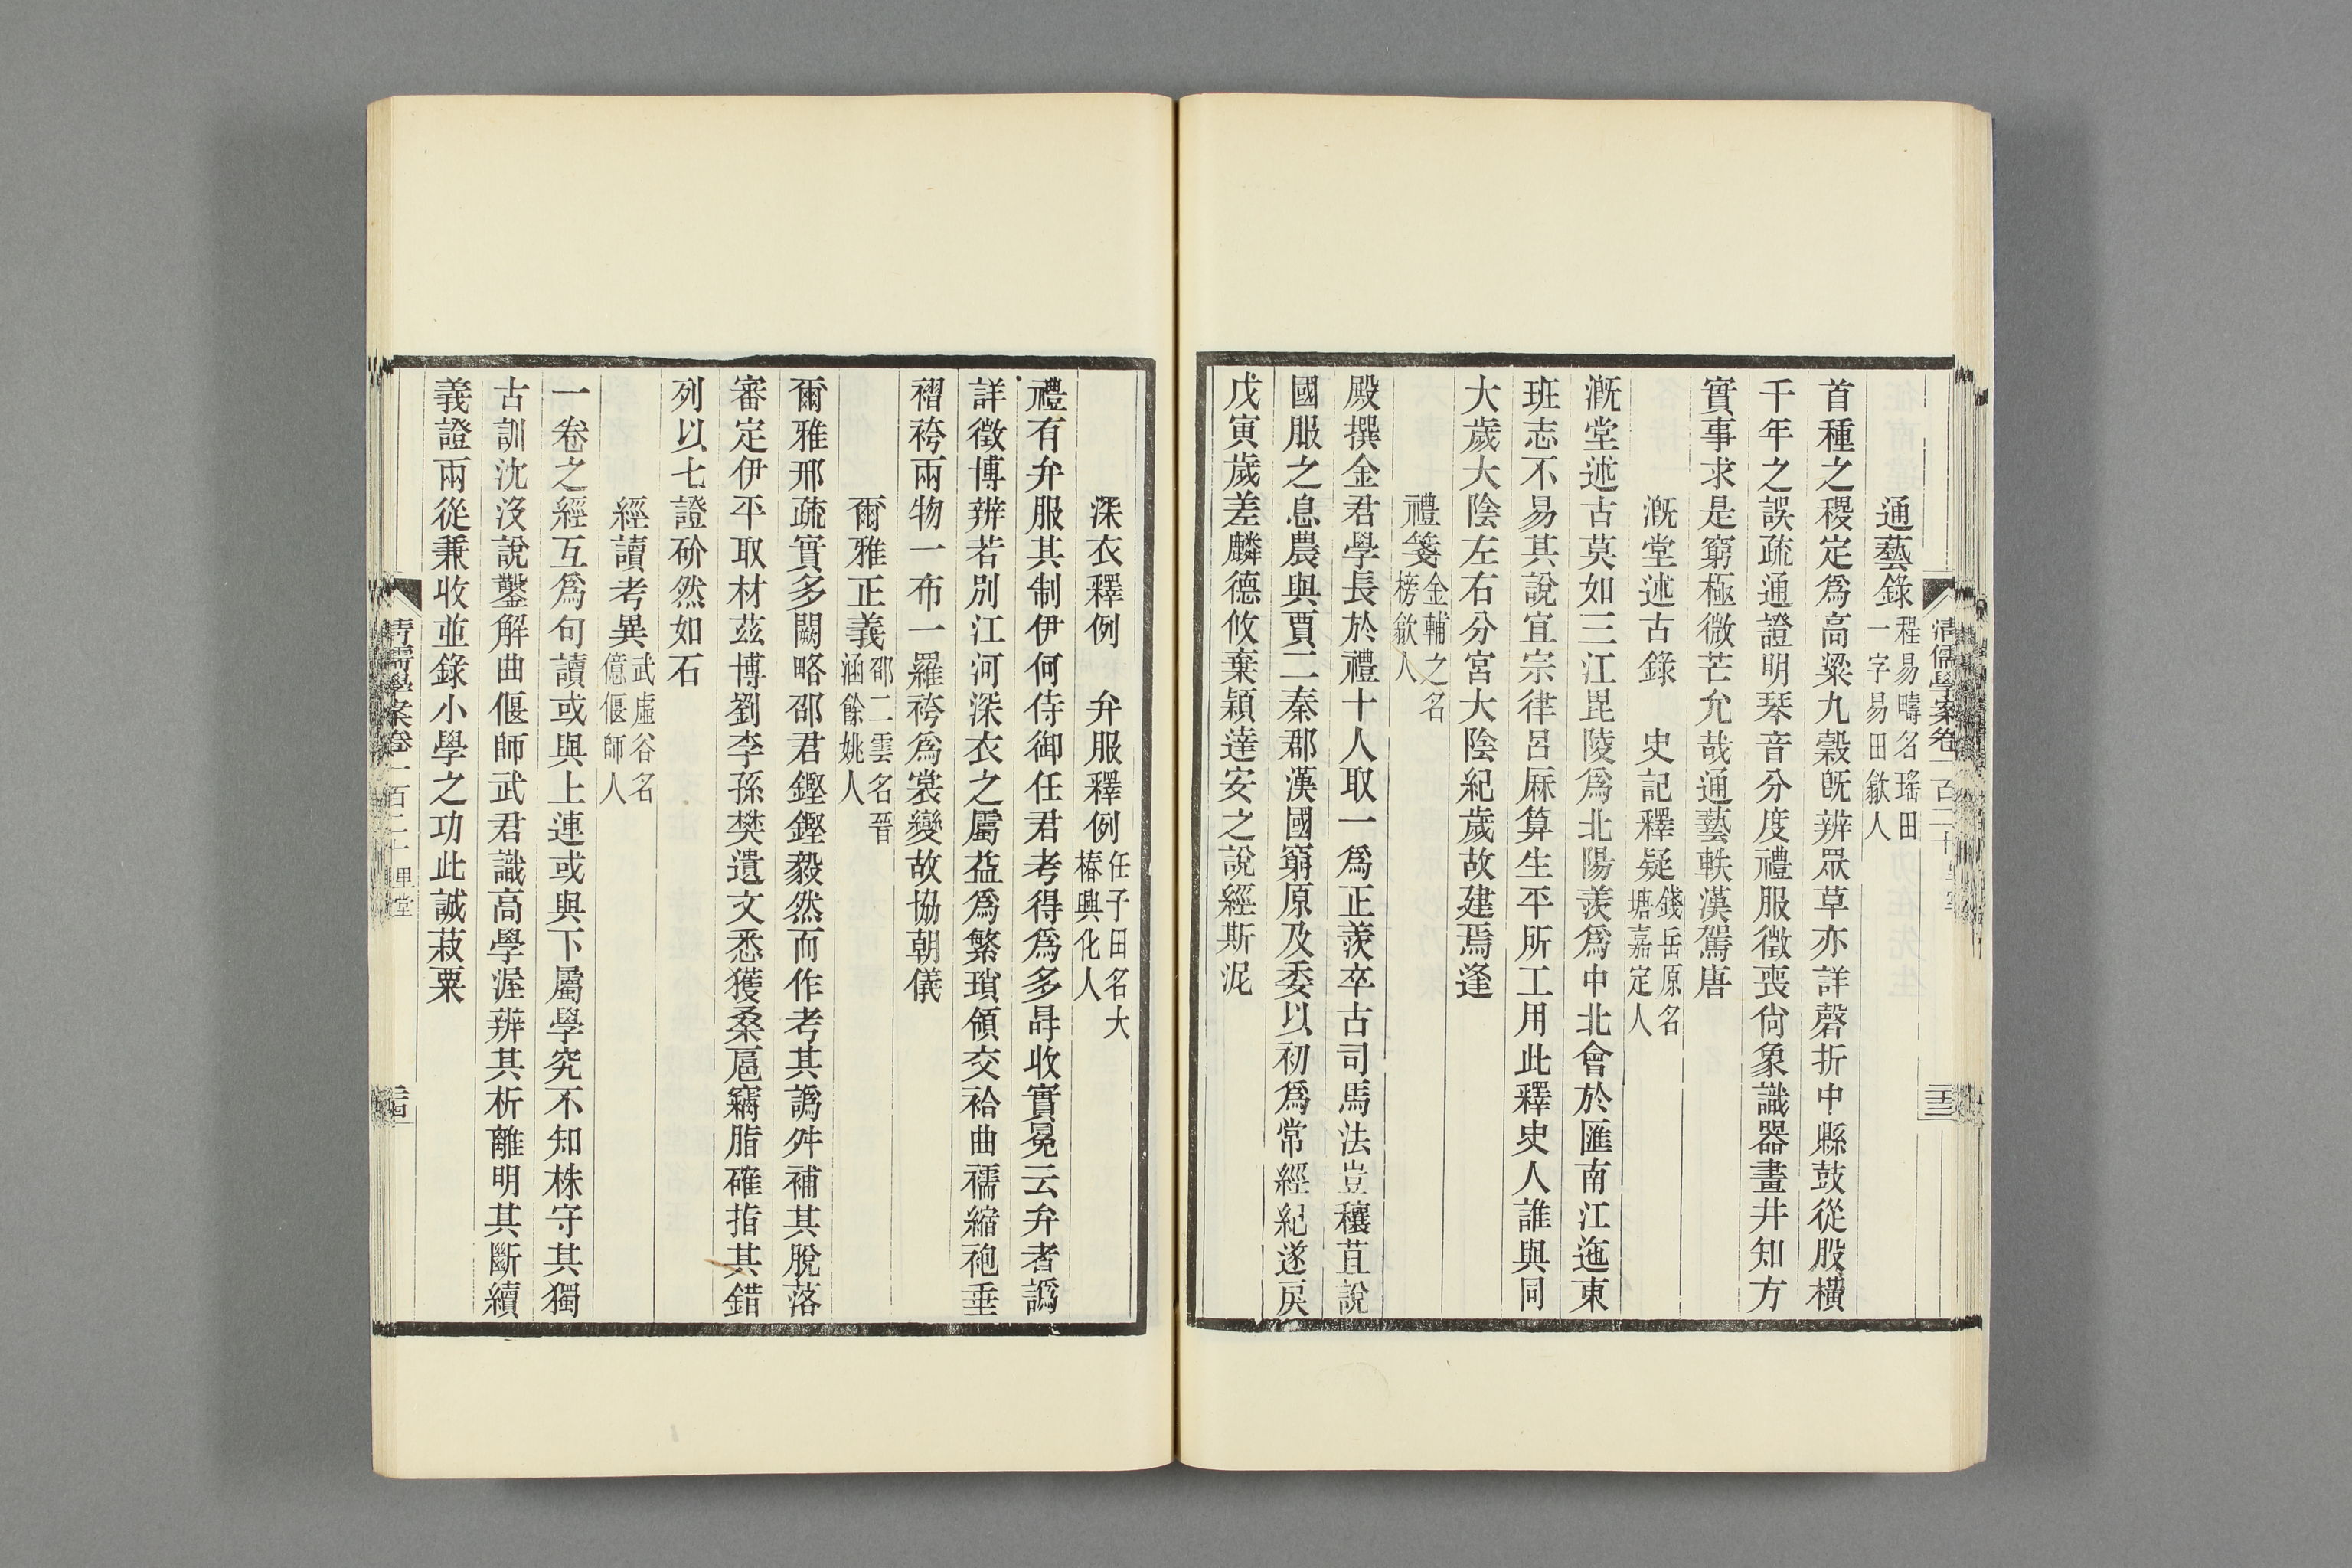 清儒學案卷一百二十
里堂
三三
通藝錄程易疇名瑤田一字易田歙人
首種之稷定爲高粱九穀旣辨眾草亦詳磬折中縣鼓從股橫
千年之誤疏通證明琴音分度禮服徵喪尙象識器畫井知方
實事求是窮極微芒允哉通藝軼漢駕唐
漑堂述古錄 史記釋疑錢岳原名塘嘉定人
漑堂述古莫如三江毘陵爲北陽羨爲中北會於匯南江迤東
班志不易其說宜宗律呂厤算生平所工用此釋史人誰與同
大歲大陰左右分宮大陰紀歲故建焉逢
禮箋金輔之名榜歙人
殿撰金君學長於禮十人取一爲正羨卒古司馬法豈穰苴說
國服之息農與賈二秦郡漢國窮原及委以初爲常經紀遂戾
戊寅歲差麟德攸棄穎達安之說經斯泥
深衣釋例 弁服釋例任子田名大椿興化人
禮有弁服其制伊何侍御任君考得爲多冔收實冕云弁者譌
詳徵博辨若別江河深衣之屬益爲繁瑣領交袷曲襦縮袍垂
褶袴兩物一布一羅袴爲裳變故協朝儀
爾雅正義邵二雲名晉涵餘姚人
爾雅邢疏實多闕略邵君鏗鏗毅然而作考其譌舛補其脫落
審定伊平取材茲博劉李孫樊遺文悉獲桑扈竊脂確指其錯
列以七證砎然如石
經讀考異武虛谷名億偃師人
一卷之經互爲句讀或與上連或與下屬學究不知株守其獨
古訓沈沒說鑿解曲偃師武君識高學渥辨其析離明其斷續
義證兩從兼收並錄小學之功此誠菽粟
清儒學案卷一百二十
里堂
三四